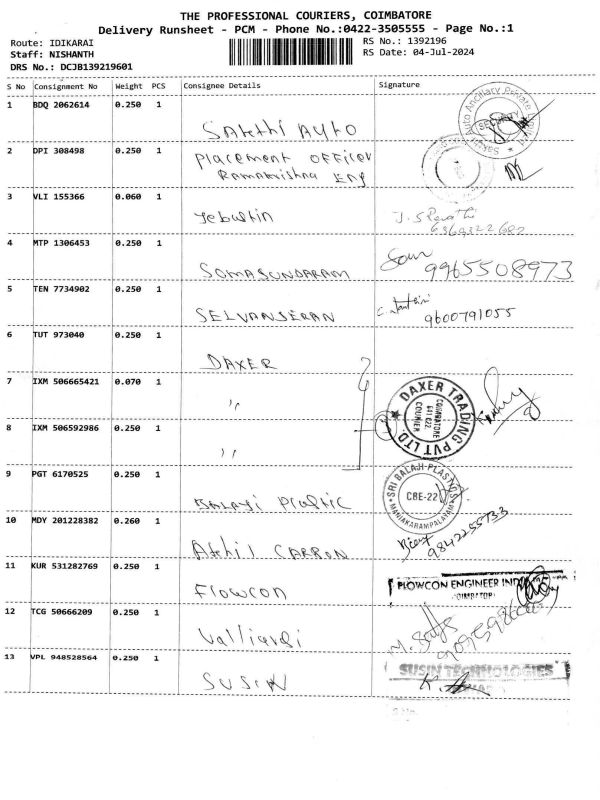 THE PROFESSIONAL COURIERS, COIMBATORE
Delivery Runsheet - PCM - Phone No.:0422-3505555 - Page No.:1
Route: IDIKARAI
RS No.: 1392196
Staff: NISHANTH
RS Date: 04-Jul-2024
DRS No.: DCJB139219601
S No Consignment No Weight PCS Consignee Details Signature
1 BDQ 2062614 0.250 1
Sakthi Auto
SECURITY
2 DPI 308498 0.250 1
Placement officer
Ramakrishna Eng
3 VLI 155366 0.060 1
Jebustin
6369322682
4 MTP 1306453 0.250 1
SOMASUNDARAM
9965508973
5 TEN 7734902 0.250 1
SELVANSERAN
9600791055
6 TUT 973040 0.250 1
DAXER
7 IXM 506665421 0.070 1
"
DAXER TRADING PVT LTD.
COIMBATORE
641 022
COURIER
8 IXM 506592986 0.250 1
"
9 PGT 6170525 0.250 1
Balaji Plastic
SRI BALAJI PLASTICS
CBE-22
MANIAKARAMPALAYAM
10 MDY 201228382 0.260 1
Akhil CARBON
9842255733
11 KUR 531282769 0.250 1
Flowcon
FLOWCON ENGINEER
COIMBATORE
12 TCG 50666209 0.250 1
13 VPL 948528564 0.250 1
SUSIN
SUSIN TECHNOLOGIES